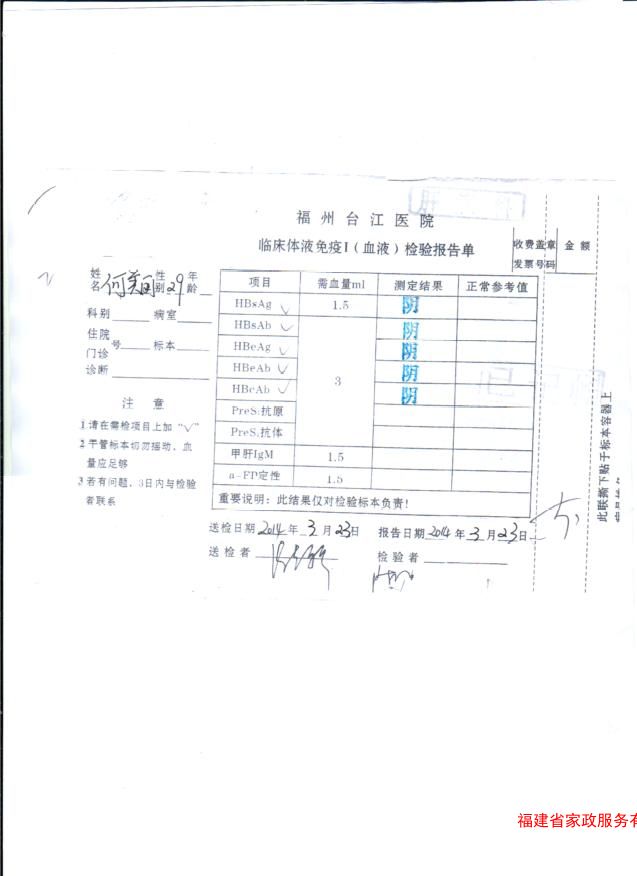 福州台江医院
临床体液免疫I(血液)检验报告单
收费盖章 金额
发票号码
姓名 性别 29 年龄
科别 病室
住院
门诊 号 标本
诊断
注意
1 请在需检项目上加“√”
2 干管标本切勿摇动、血
量应足够
3 若有问题,3日内与检验
者联系
项目 需血量ml 测定结果 正常参考值
HBsAg √ 1.5 阴
HBsAb √ 阴
HBeAg √ 阴
HBeAb √ 3 阴
HBcAb √ 阴
PreS₁抗原
PreS₁抗体
甲肝IgM 1.5
a-FP定性 1.5
重要说明:此结果仅对检验标本负责!
送检日期 2014 年 3 月 23 日 报告日期 2014 年 3 月 23 日
送检者 检验者
此联撕下贴于标本容器上
福建省家政服务有